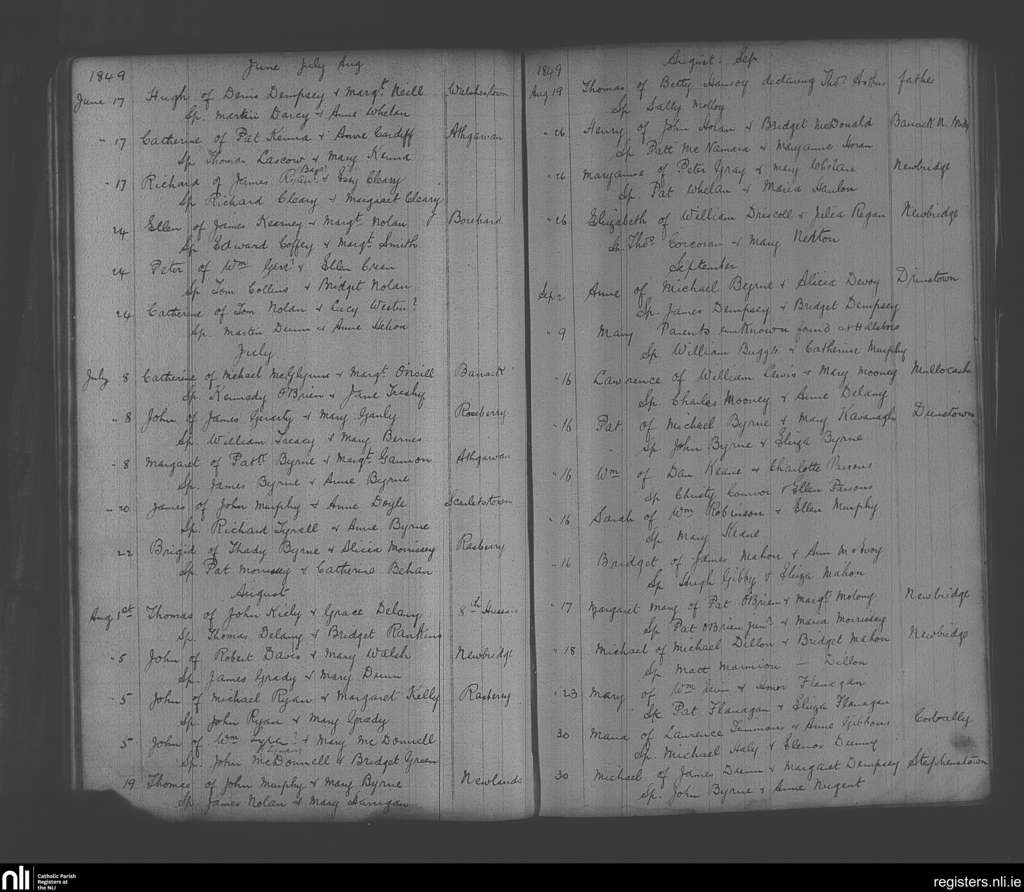 1849 June July Aug
June 17 Hugh of Denis Dempsey & Margt. Neill Walshestown
Sp. Martin Darcy & Anne Whelan
" 17 Catherine of Pat Kenna & Anne Cardiff Athgarvan
Sp Thomas Lascow & Mary Kenna
" 17 Richard of James Ryan & Cleary
Sp Richard Cleary & Margaret Cleary
24 Ellen of James Kearney & Margt. Nolan
Sp Edward Coffey & Margt. Smith
24 Peter of Wm & Ellen Crean
Sp Tom Collins & Bridget Nolan
24 Catherine of Tom Nolan & Lucy Westn?
Sp. Martin Dunn & Anne
July
July 8 Catherine of Michael McGlynne & Margt. O'Neill Barrack
Sp. Kennedy O'Brien & Jane
" 8 John of James Geraty & Mary Ganly Roseberry
Sp. William Treacy & Mary Bernes
" 8 Margaret of Patk Byrne & Margt. Gannon Athgarvan
Sp. James Byrne & Anne Byrne
" 20 James of John Murphy & Anne Doyle Scarletstown
Sp. Richard Tyrell & Anne Byrne
22 Brigid of Thady Byrne & Alicia Morrissey Rasberry
Sp. Pat Morrissey & Catherine Behan
August
Aug 1st Thomas of John Kiely & Grace Delany 8th Hussars
Sp. Thomas Delany & Bridget Rankins
" 5 John of Robert Davis & Mary Walsh Newbridge
Sp. James Grady & Mary Dunn
" 5 John of Michael Ryan & Margaret Kelly Rasberry
Sp. John Ryan & Mary Grady
5 John of Wm & Mary McDonnell
Sp. John McDonnell & Bridget Green
19 Thomas of John Murphy & Mary Byrne Newlands
Sp. James Nolan & Mary
1849 August Sep
Aug 19 Thomas of Betty declaring Thos. father
Sp Sally Molloy
" 26 Henry of John Horan & Bridget McDonald Barrack
Sp Patt McNamara & Maryanne Horan
" 26 Maryanne of Peter Gray & Mary Whelan Newbridge
Sp. Pat Whelan & Maria Hanlon
" 26 Elizabeth of William Driscoll & Julia Regan Newbridge
Sp. Thos. Corcoran & Mary
September
Sep 2 Anne of Michael Beyrne & Alicia Devoy
Sp. James Dempsey & Bridget Dempsey
" 9 Mary Parents unknown found at
Sp. William Buggle & Catherine Murphy
" 16 Lawrence of William Lewis & Mary Mooney Mullocash
Sp. Charles Mooney & Anne Delany
" 16 Pat of Michael Byrne & Mary Kavanagh
Sp John Byrne & Eliza Byrne
" 16 Wm of Dan Keane & Charlotte Parsons
Sp Christy Connor & Ellen Parsons
" 16 Sarah of Wm Robinson & Ellen Murphy
Sp Mary Keane
" 16 Bridget of James Mahon & Ann
Sp Hugh Gibby & Eliza Mahon
" 17 Margaret Mary of Pat O'Brien & Margt. Molony Newbridge
Sp Pat O'Brien Junr. & Maria Morrissey
" 18 Michael of Michael Dillon & Bridget Mahon Newbridge
Sp Matt Marmion — Dillon
" 23 Mary of Wm & Honor Flanagan
Sp Pat Flanagan & Eliza Flanagan
30 Maria of Lawrence Timmons & Anne Gibbons Corbally
Sp. Michael Haly & Elenor Dunny
30 Michael of James Dunn & Margaret Dempsey Stephenstown
Sp. John Byrne & Anne Nugent
nli Catholic Parish
Registers at
the NLI
registers.nli.ie